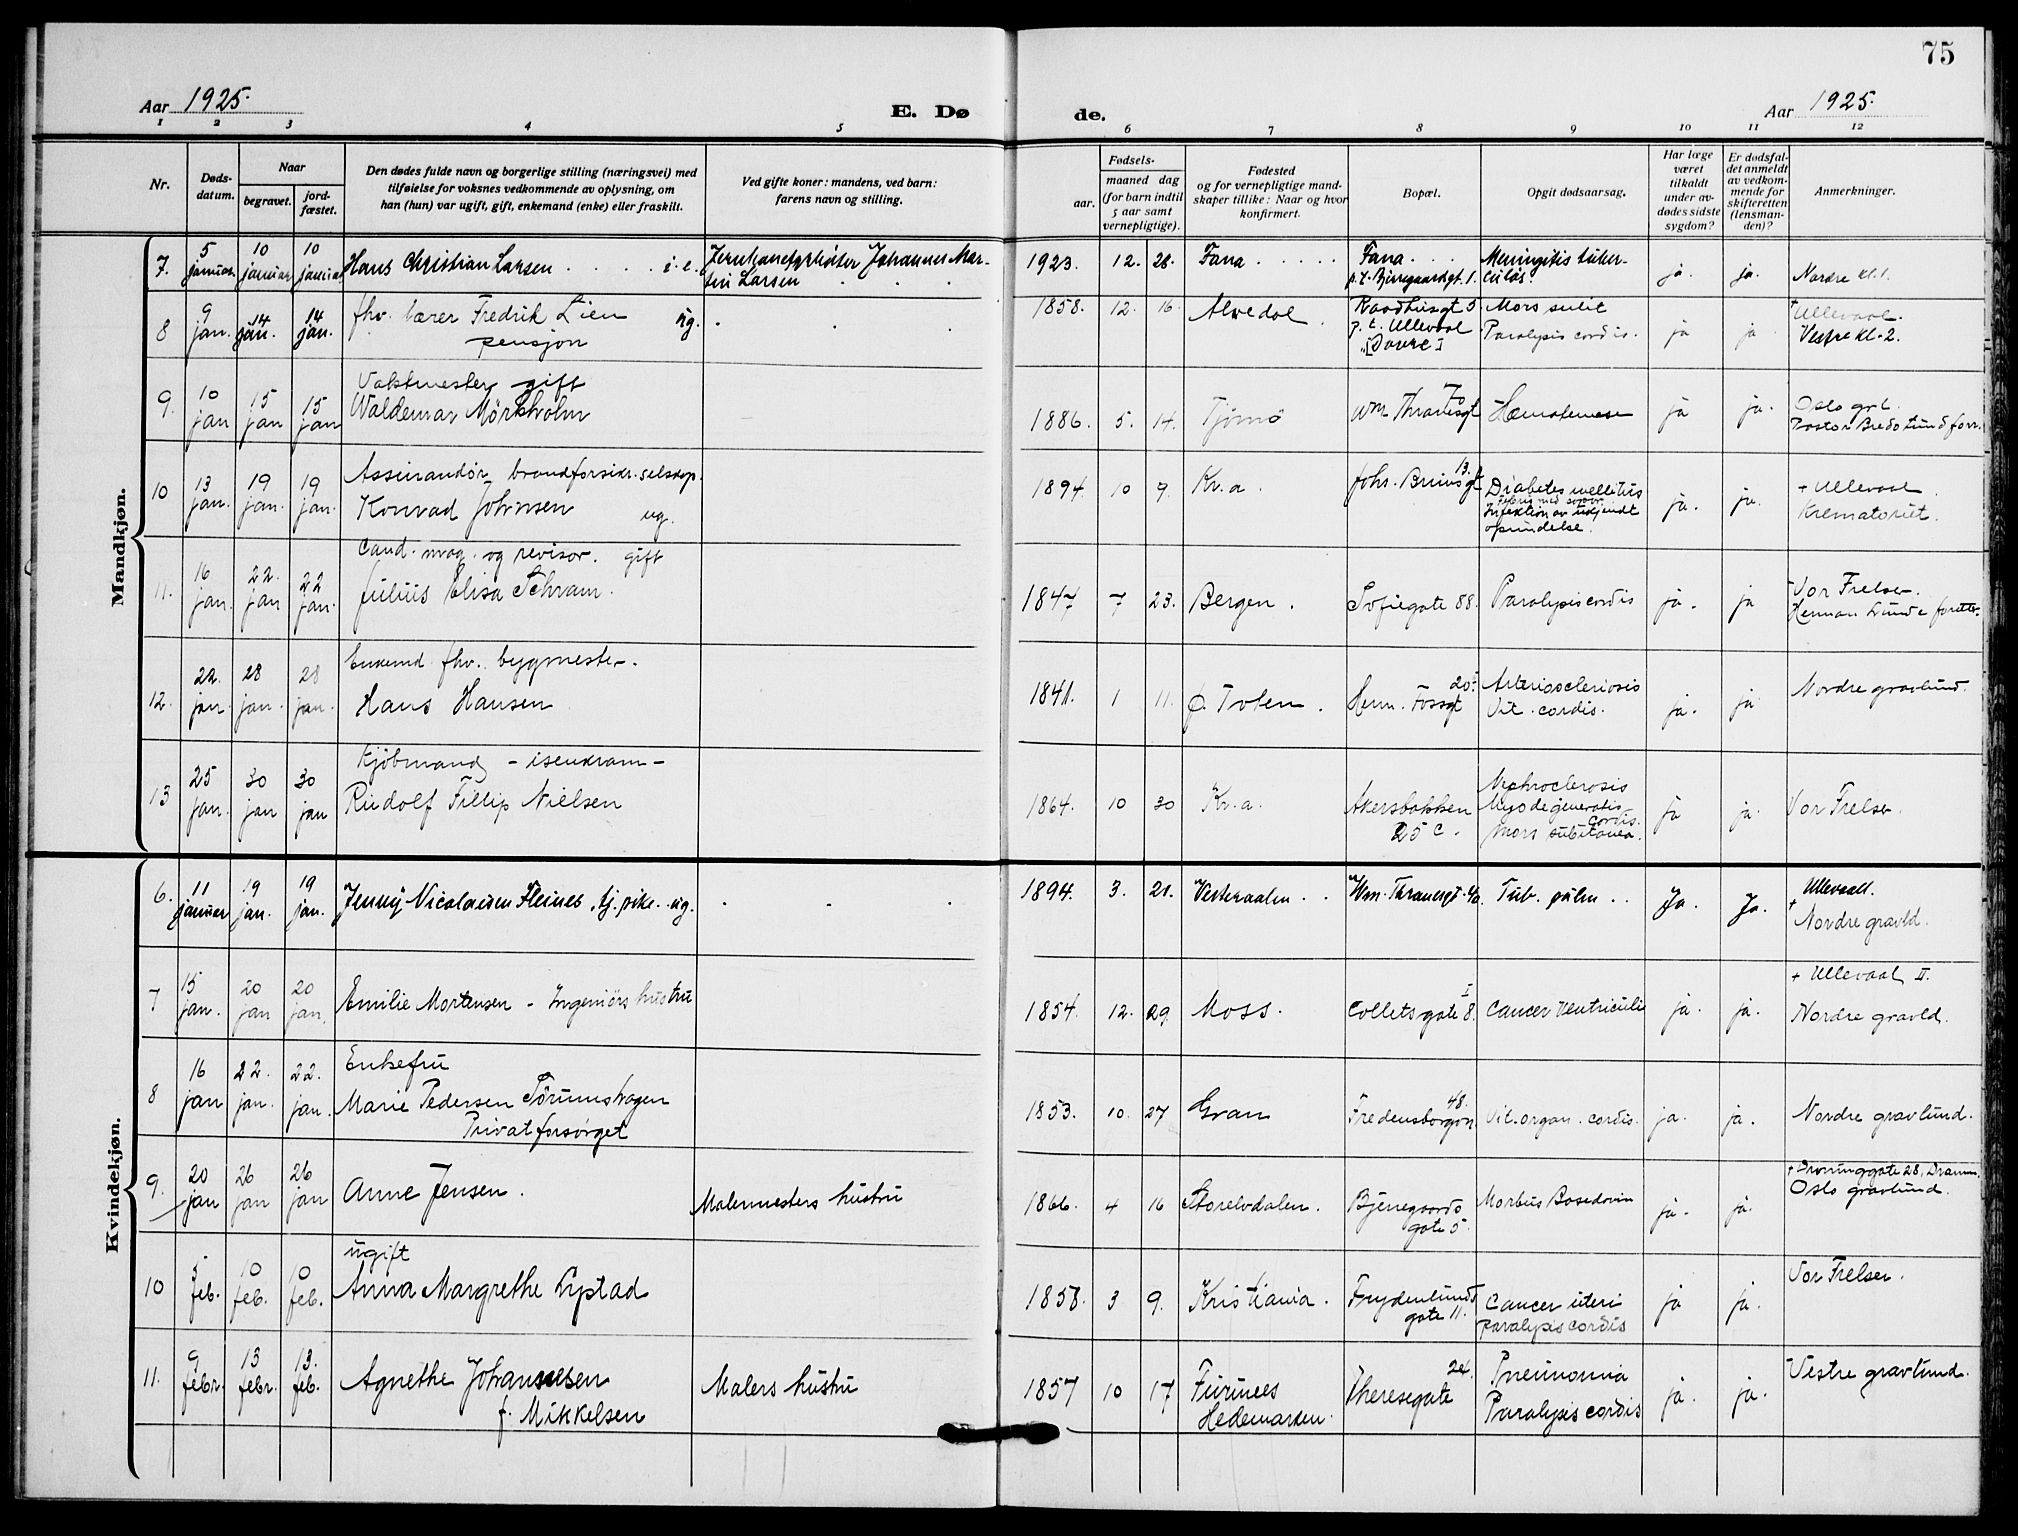 75
Aar 1925.
E. Dø
de.
Aar 1925.
1 2 3 4 5 6 7 8 9 10 11 12
Nr.
Døds-
datum.
Naar
begravet.
jord-
fæstet.
Den dødes fulde navn og borgerlige stilling (næringsvei) med
tilføielse for voksnes vedkommende av oplysning, om
han (hun) var ugift, gift, enkemand (enke) eller fraskilt.
Ved gifte koner: mandens, ved barn:
farens navn og stilling.
Fødsels-
aar.
maaned dag
(for barn indtil
5 aar samt
vernepligtige).
Fødested
og for vernepligtige mand-
skaper tillike: Naar og hvor
konfirmert.
Bopæl.
Opgit dødsaarsag.
Har læge
været
tilkaldt
under av-
dødes sidste
sygdom?
Er dødsfal-
det anmeldt
av vedkom-
mende for
skifteretten
(lensman-
den)?
Anmerkninger.
Mandkjøn.
7. 5 januar 10 januar 10 januar Hans Christian Larsen i.e. Johannes Mar-
tin Larsen
1923. 12. 28. Fana Fana
p.t. Bjerregaardsgt. 1.
Meningitis tuber-
culös.
ja. ja. Nordre kl. 1.
8 9 jan. 14 jan. 14 jan. fhv. lærer Fredrik Lien ug.
pensjon
1858. 12. 16. Alvedal Raadhusgt 5
p.t. Ullevaal
"Dovre"
Mors subit
Paralysis cordis.
ja ja + Ullevaal.
Vestre kl. 2.
9. 10 jan 15 jan 15 jan Vaktmester gift
Waldemar Mörkholm
1886. 5. 14. Tjømø Wm Thranesgt Hæmatemese ja ja. Oslo grl.
Pastor Bredo Lund forr.
10 13 jan. 19 jan. 19 jan. Assurandör brandforsikr. selskap
Konrad Johnsen ug.
1894. 10 9. Kr.a. Johs. Brunsgt 13. Diabetes mellitus
Infektion av ukjendt
oprindelse.
ja. ja. + Ullevaal.
Krematoriet.
11. 16 jan. 22. jan 22 jan. Cand. mag. og revisor. gift
Julius Elisa Schram.
1847 7 23. Bergen. Sofiegate 88. Paralysis cordis ja. ja Vor Frelser.
Herman Lunde forrett.
12. 22. jan. 28 jan. 28 jan. Enkemd fhv. bygmester.
Hans Hansen
1841. 1 11. Ø. Toten. Herm. Fossgt 20 I Arteriosclerosis
Vit. cordis.
ja. ja Nordre gravlund.
13 25 jan. 30 jan 30 jan Kjöbmand - isenkram -
Rudolf Fillip Nielsen
1864. 10 30 Kr.a. Akersbakken
25 c.
Nephroclerosis
Myodegeneratio
cordis.
Mors subitanea.
ja ja. Vor Frelser.
Kvindekjøn.
6. 11 januar 19 jan. 19 jan. Jenny Nicolaisen Fleines, tj. pike. ug.
1894. 3. 21. Vesteraalen Wm. Thranesgt. Tub. pulm. Ja. Ja. Ullevaal.
+ Nordre gravld.
7 15 jan. 20 jan 20 jan. Emilie Mortensen - Ingeniörs hustru
1854. 12. 29. Moss. Colletsgate 8. I Cancer Ventriculi ja. ja. + Ullevaal II.
Nordre gravld.
8 16 jan 22. jan. 22. jan. Enkefru
Marie Pedersen Törumshagen
Privat forsörget
1853. 10. 27 Gran Fredensborgvn. 48. Vit. organ. cordis. ja. ja. Nordre gravlund.
9. 20 jan 26 jan 26 jan Anne Jensen. Malermesters hustru
1866. 4 16 Storelvdalen. Bjerregaards
gate 5.
Morbus Basedowii ja. ja. + Dronninggate 28, Dramm.
Oslo gravlund.
10 5 feb. 10 feb. 10 feb. ugift
Anna Margrethe Lystad
1858. 3 9. Kristiania. Frydenlunds
gate 11.
Cancer uteri
Paralysis cordis
ja ja. Vor Frelser.
11. 9 febr. 13 febr. 13. feb. Agnethe Johannesen
f. Mikkelsen
Malers hustru
1857 10 17 Furunes
Hedemarken.
Theresegate 24. Pneumonia
Paralysis cordis
ja. ja. Vestre gravlund.